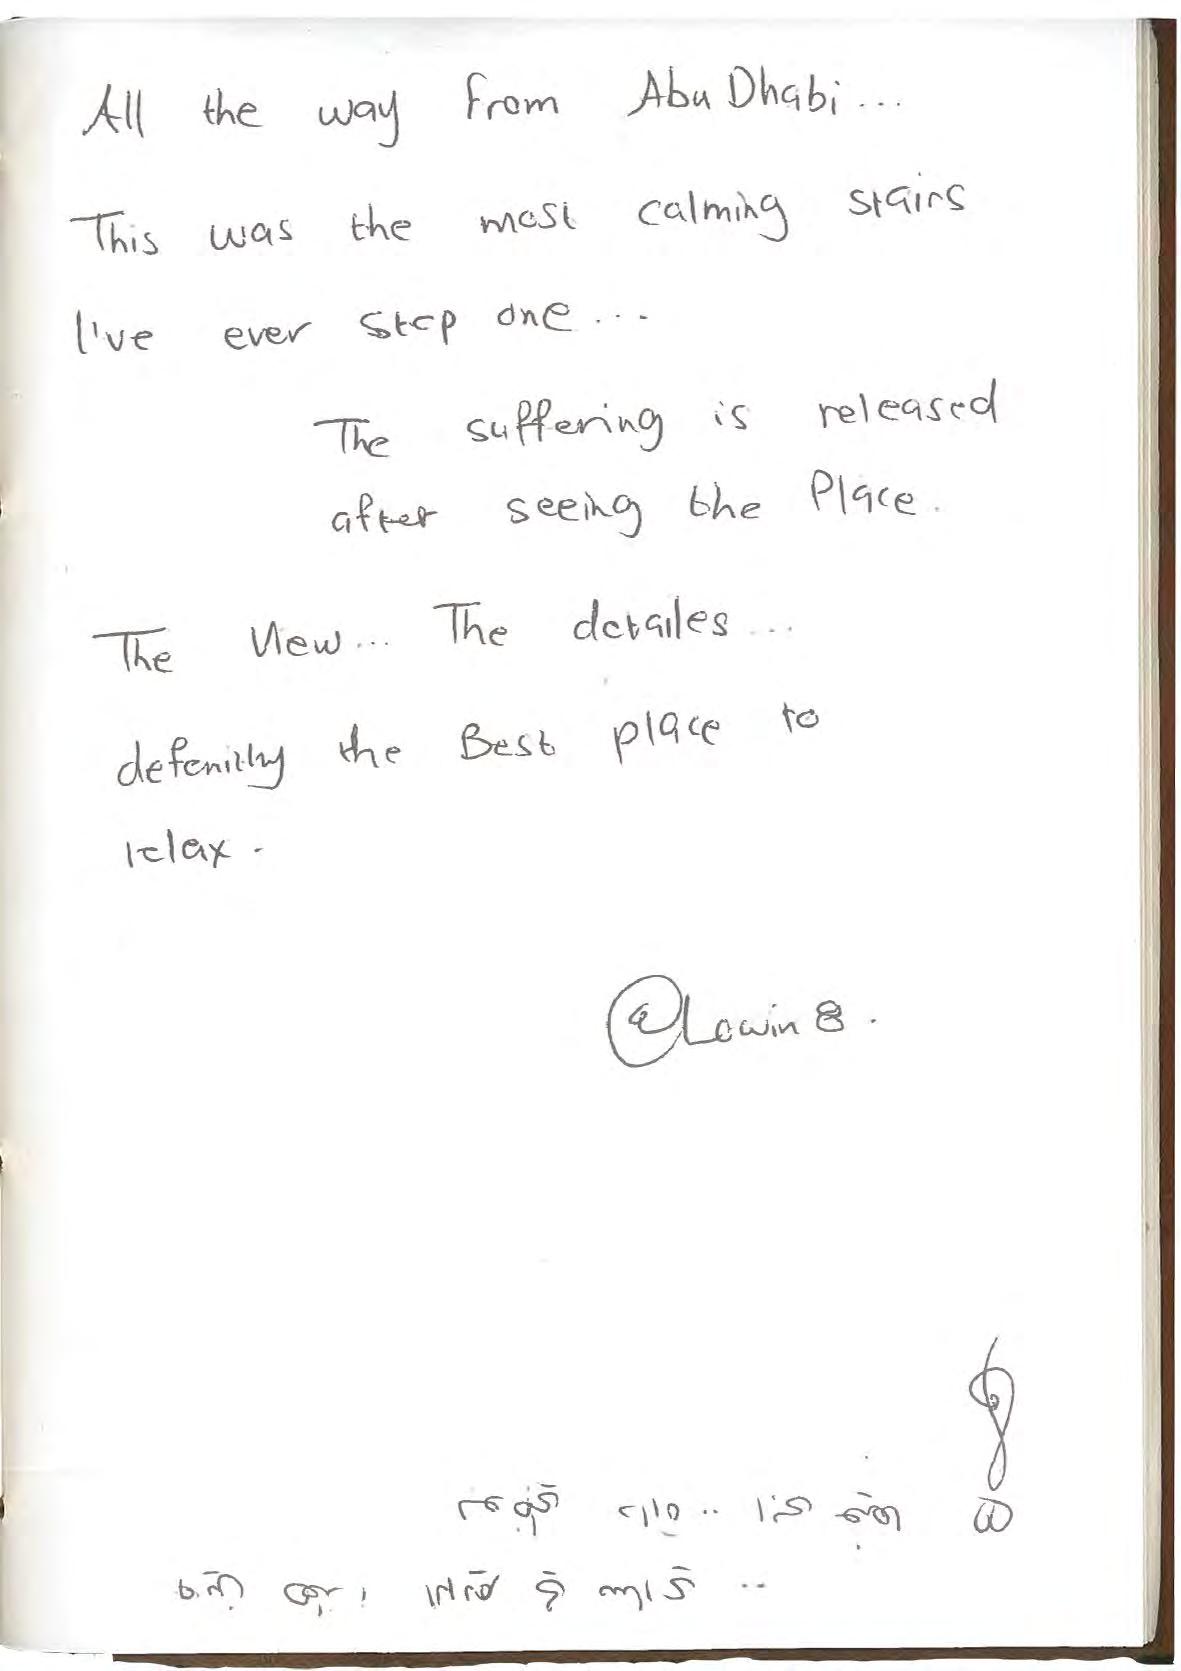 All the way from Abu Dhabi...
This was the most calming stairs
I've ever step one....
The suffering is released
after seeing the Place.
The View... The detailes...
defenitly the Best place to
relax.
@Lowin8.